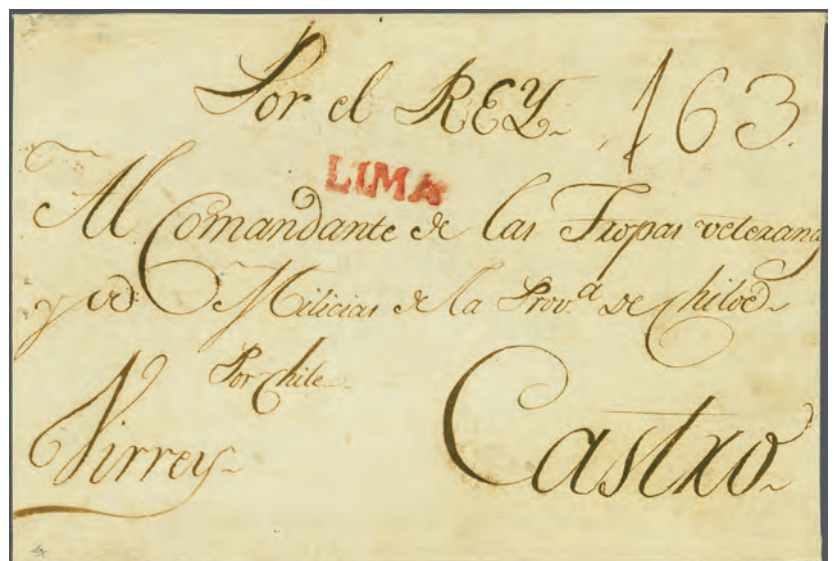 Por el REY 163.
LIMA
Al Comandante de las Tropas veteranas
y de Milicias de la Prov.ª de Chiloè
Por Chile
Virrey
Castro